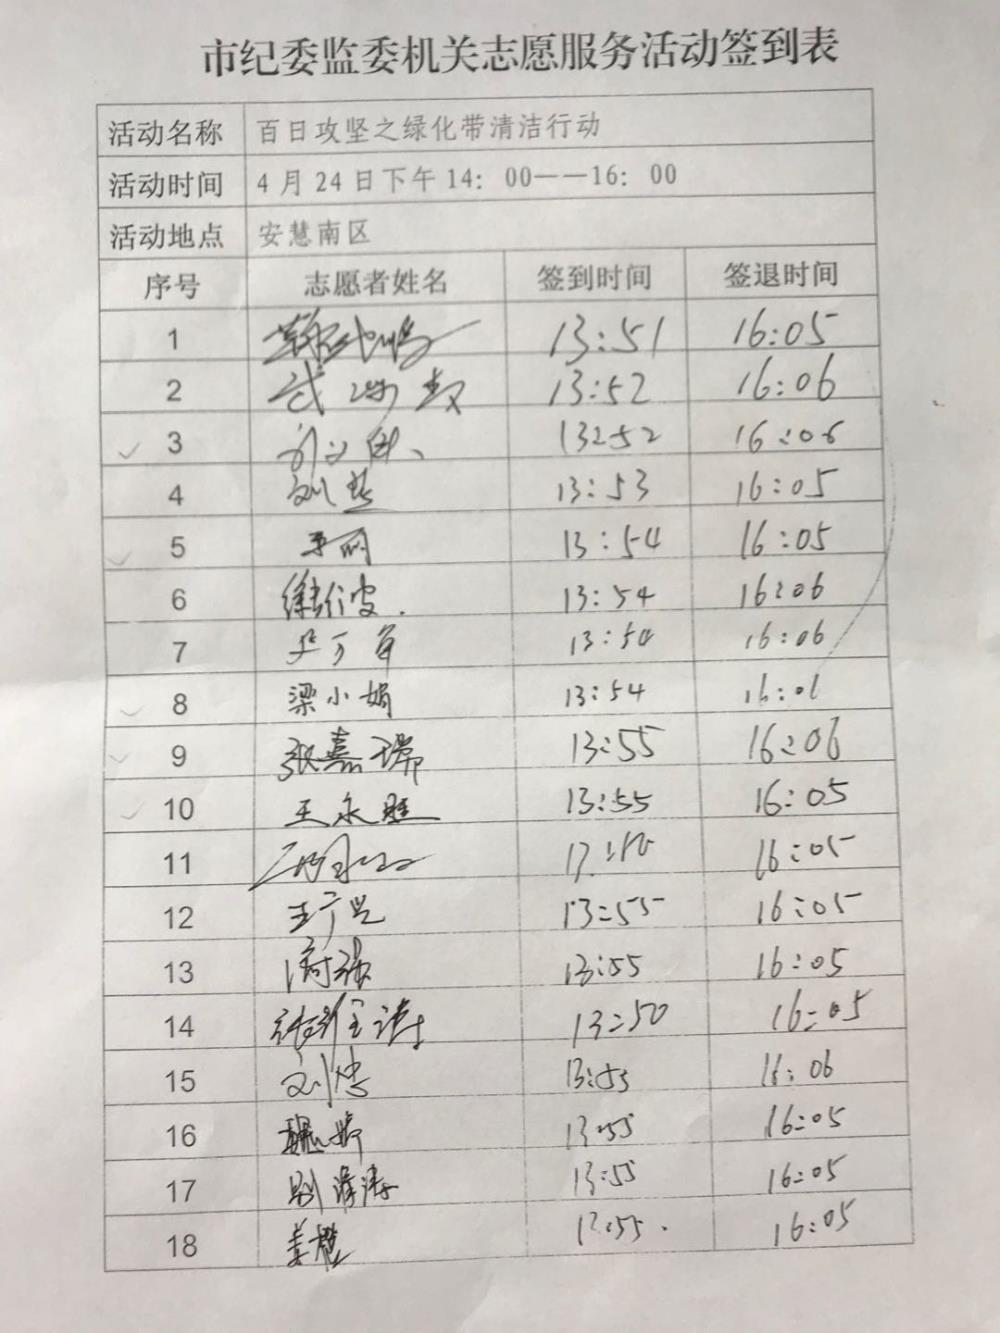 市纪委监委机关志愿服务活动签到表
活动名称 百日攻坚之绿化带清洁行动
活动时间 4月24日下午14：00——16：00
活动地点 安慧南区
序号 志愿者姓名 签到时间 签退时间
1 13:51 16:05
2 13:52 16:06
3 13:52 16:06
4 13:53 16:05
5 13:54 16:05
6 13:54 16:06
7 13:54 16:06
8 梁小娟 13:54 16:06
9 张嘉瑞 13:55 16:06
10 王永胜 13:55 16:05
11 16:05
12 王广兴 13:55 16:05
13 13:55 16:05
14 13:50 16:05
15 刘忠 13:55 16:06
16 魏婷 13:55 16:05
17 13:55 16:05
18 姜楚 13:55 16:05